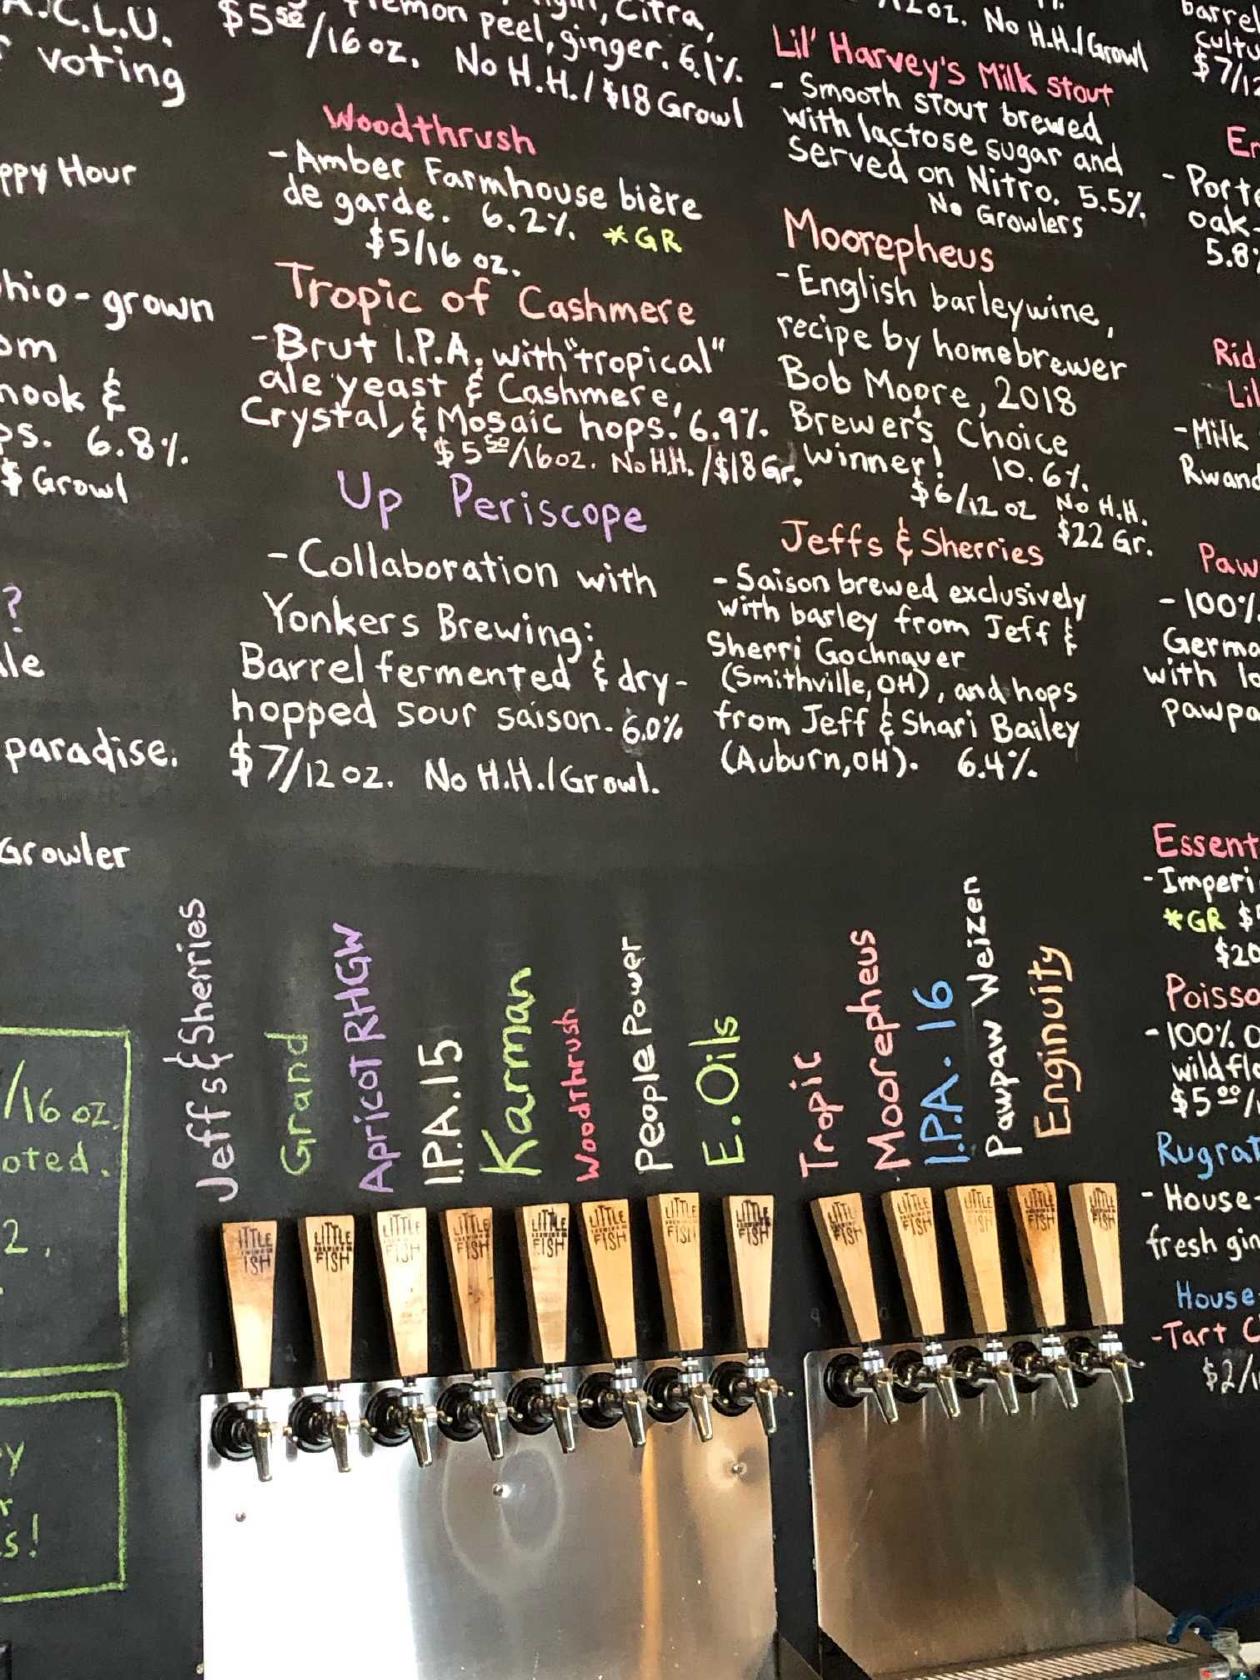 A.C.L.U.
voting
ppy Hour
hio-grown
om
nook &
ps. 6.8%.
$ Growl
?
le
paradise.
Growler
/16 oz.
oted.
2,
y
r
s!
Citra,
lemon peel, ginger. 6.1%.
$5.50/16 oz. No H.H./$18 Growl
Woodthrush
-Amber Farmhouse bière
de garde. 6.2%. *GR
$5/16 oz.
Tropic of Cashmere
-Brut I.P.A. with "tropical"
ale yeast & Cashmere,
Crystal, & Mosaic hops. 6.9%.
$5.50/16oz. No H.H./$18 Gr.
Up Periscope
-Collaboration with
Yonkers Brewing:
Barrel fermented & dry-
hopped sour saison. 6.0%
$7/12 oz. No H.H./Growl.
12oz. No H.H./Growl
Lil' Harvey's Milk stout
- Smooth stout brewed
with lactose sugar and
served on Nitro. 5.5%.
No Growlers
Moorepheus
-English barleywine,
recipe by homebrewer
Bob Moore, 2018
Brewer's Choice
winner! 10.6%.
$6/12 oz No H.H.
$22 Gr.
Jeffs & Sherries
-Saison brewed exclusively
with barley from Jeff &
Sherri Gochnauer
(Smithville, OH), and hops
from Jeff & Shari Bailey
(Auburn, OH). 6.4%.
barre
cultu
$7/12
En
-Port
oak-
5.8%
Rid
Lil
-Milk
Rwand
Paw
-100%
Germa
with lo
pawpa
Essent
-Imperi
*GR $5
$20
Poisso
-100% O
wildflo
$5.00/
Rugrat
-House
fresh gin
House
-Tart C
$2/1
Jeffs & Sherries
Grand
Apricot RHGW
I.P.A. 15
Karman
Woodthrush
People Power
E. Oils
Tropic
Moorepheus
I.P.A. 16
Pawpaw Weizen
Enginuity
LITTLE FISH
LITTLE FISH
LITTLE FISH
LITTLE FISH
LITTLE FISH
LITTLE FISH
LITTLE FISH
LITTLE FISH
LITTLE FISH
LITTLE FISH
LITTLE FISH
LITTLE FISH
LITTLE FISH